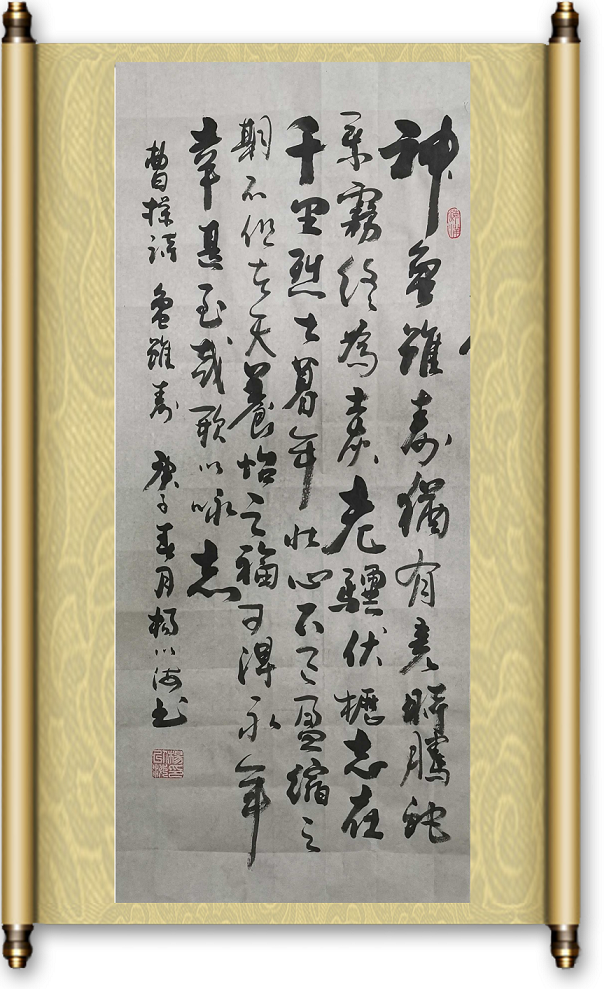 神龜雖壽猶有竟時騰蛇
乘霧終為土灰老驥伏櫪志在
千里烈士暮年壯心不已盈縮之
期不但在天養怡之福可得永年
幸甚至哉歌以咏志
曹操詩 龜雖壽 庚子春月楊以海书